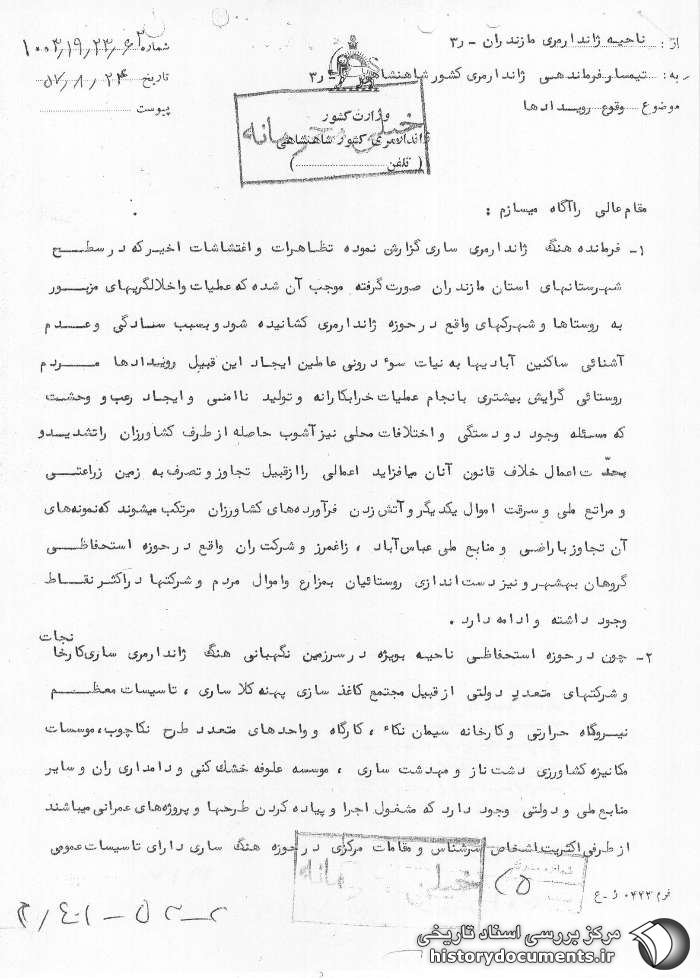 از: ناحیه ژاندارمری مازندران - ر۳
به: تیمسار فرماندهی ژاندارمری کشور شاهنشاهی - ر۳
موضوع وقوع رویدادها
شماره ۱۰۰۳/۱۹/۲۳/۶۲
تاریخ ۵۷/۸/۲۴
پیوست
وزارت کشور
ژاندارمری کشور شاهنشاهی
(تلفن ..............)
خیلی محرمانه
مقام عالی را آگاه میسازم :
۱- فرمانده هنگ ژاندارمری ساری گزارش نموده تظاهرات و اغتشاشات اخیر که در سطح
شهرستانهای استان مازندران صورت گرفته موجب آن شده که عملیات و اخلالگریهای مزبور
به روستاها و شهرکهای واقع در حوزه ژاندارمری کشانیده شود و بسبب سادگی و عدم
آشنائی ساکنین آبادیها به نیات سوء درونی عاملین ایجاد این قبیل رویدادها مردم
روستائی گرایش بیشتری بانجام عملیات خرابکارانه و تولید ناامنی و ایجاد رعب و وحشت
که مسئله وجود دو دستگی و اختلافات محلی نیز آشوب حاصله از طرف کشاورزان را تشدید و
بحدّت اعمال خلاف قانون آنان میافزاید اعمالی را از قبیل تجاوز و تصرف به زمین زراعتی
و مراتع ملی و سرقت اموال یکدیگر و آتش زدن فرآورده‌های کشاورزان مرتکب میشوند که نمونه‌های
آن تجاوز باراضی و منابع ملی عباس‌آباد ، زاغمرز و شرکت ران واقع در حوزه استحفاظی
گروهان بهشهر و نیز دست اندازی روستائیان بمزارع و اموال مردم و شرکتها در اکثر نقاط
وجود داشته و ادامه دارد .
۲- چون در حوزه استحفاظی ناحیه بویژه در سرزمین نگهبانی هنگ ژاندارمری ساری کارخانجات
و شرکتهای متعدد دولتی از قبیل مجتمع کاغذ سازی پهنه کلا ساری ، تاسیسات معظم
نیروگاه حرارتی و کارخانه سیمان نکاء ، کارگاه و واحدهای متعدد طرح نکاچوب، موسسات
مکانیزه کشاورزی دشت ناز و مهدشت ساری ، موسسه علوفه خشك کنی و دامداری ران و سایر
منابع ملی و دولتی وجود دارد که مشغول اجرا و پیاده کردن طرحها و پروژه‌های عمرانی میباشند
از طرفی اکثریت اشخاص سرشناس و مقامات مرکزی در حوزه هنگ ساری دارای تاسیسات عمومی
فرم ۰۴۲۳ ژ-ع
خیلی محرمانه
مرکز بررسی اسناد تاریخی
historydocuments.ir